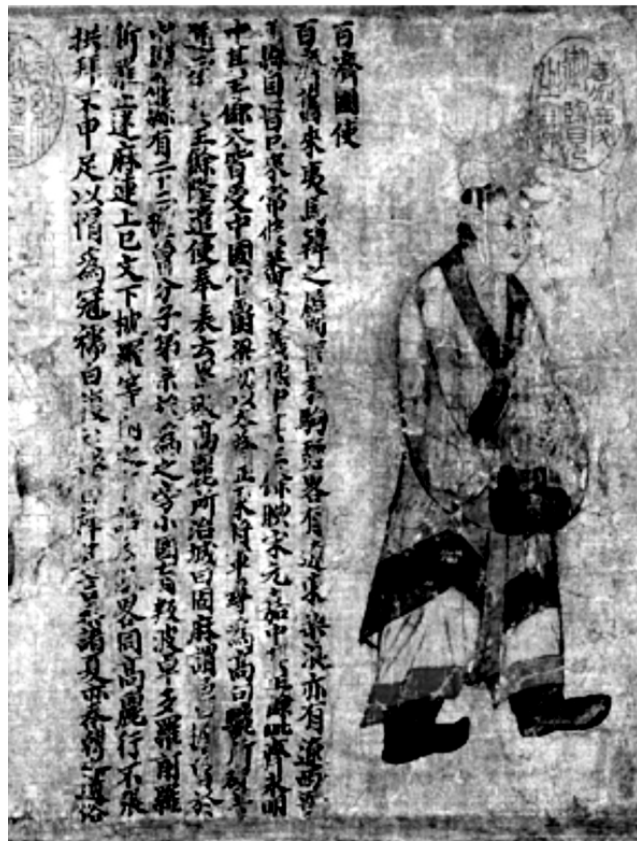 百濟國使
百濟舊來夷馬韓之屬晉末駒驪略有遼東樂浪亦有遼西晉
自晉已來常修蕃貢義熙中其王餘腆宋元嘉中其王餘毗齊永明
中其王餘太皆受中國官爵梁初以太除征東將軍尋為高句驪所破普
通二年其王餘隆遣使奉表云累破高麗所治城曰固麻謂邑曰於
郡縣有二十二分子弟宗族為之旁小國有叛波卓多羅前羅
斯羅止迷麻連上巳文下枕羅等附之言語衣服略同高麗行不張
拱拜不申足以帽為冠襦曰複衫袴曰褌其言參諸夏亦秦韓之遺俗